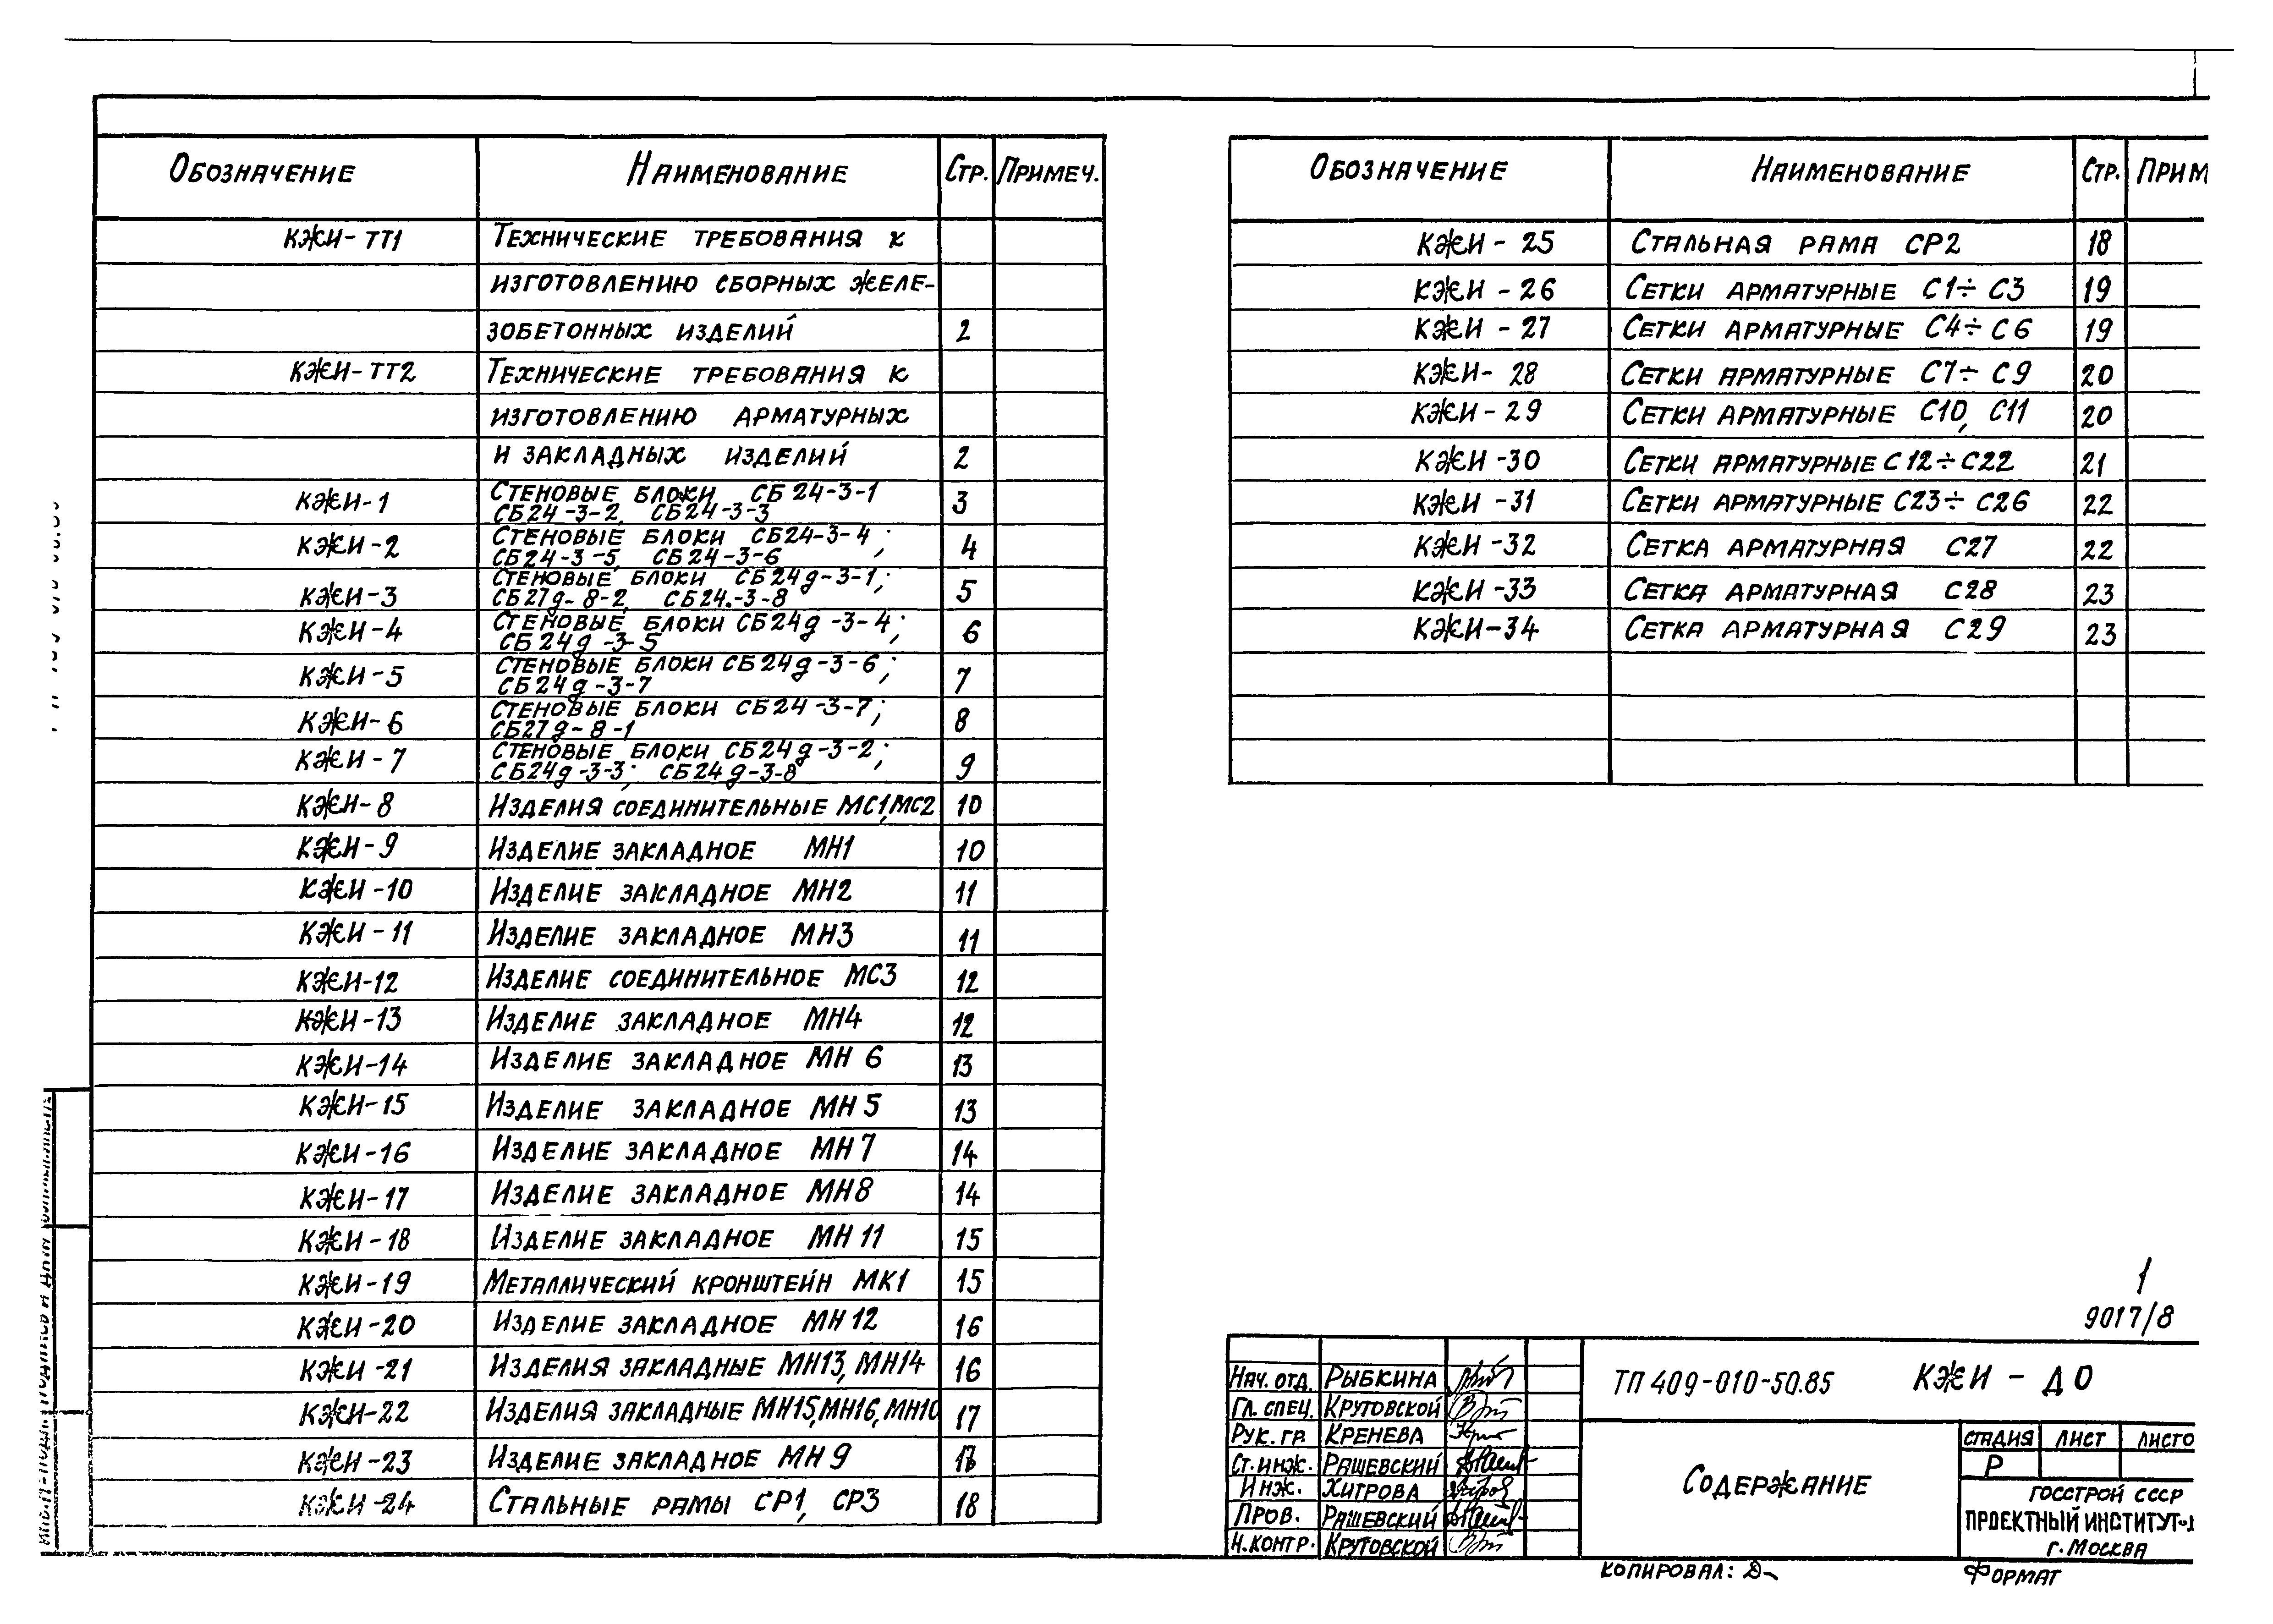 Обозначение Наименование Стр. Примеч.
КЖИ-ТТ1 Технические требования к
изготовлению сборных желе-
зобетонных изделий 2
КЖИ-ТТ2 Технические требования к
изготовлению арматурных
и закладных изделий 2
КЖИ-1 Стеновые блоки СБ24-3-1 3
СБ24-3-2, СБ24-3-3
КЖИ-2 Стеновые блоки СБ24-3-4; 4
СБ24-3-5, СБ24-3-6
КЖИ-3 Стеновые блоки СБ24д-3-1; 5
СБ27д-8-2, СБ24.-3-8
КЖИ-4 Стеновые блоки СБ24д-3-4; 6
СБ24д-3-5
КЖИ-5 Стеновые блоки СБ24д-3-6; 7
СБ24д-3-7
КЖИ-6 Стеновые блоки СБ24-3-7; 8
СБ27д-8-1
КЖИ-7 Стеновые блоки СБ24д-3-2; 9
СБ24д-3-3; СБ24д-3-8
КЖИ-8 Изделия соединительные МС1,МС2 10
КЖИ-9 Изделие закладное МН1 10
КЖИ-10 Изделие закладное МН2 11
КЖИ-11 Изделие закладное МН3 11
КЖИ-12 Изделие соединительное МС3 12
КЖИ-13 Изделие закладное МН4 12
КЖИ-14 Изделие закладное МН 6 13
КЖИ-15 Изделие закладное МН 5 13
КЖИ-16 Изделие закладное МН 7 14
КЖИ-17 Изделие закладное МН8 14
КЖИ-18 Изделие закладное МН 11 15
КЖИ-19 Металлический кронштейн МК1 15
КЖИ-20 Изделие закладное МН 12 16
КЖИ-21 Изделия закладные МН13, МН14 16
КЖИ-22 Изделия закладные МН15,МН16,МН10 17
КЖИ-23 Изделие закладное МН 9 17
КЖИ-24 Стальные рамы СР1, СР3 18
Обозначение Наименование Стр. Прим
КЖИ-25 Стальная рама СР2 18
КЖИ-26 Сетки арматурные С1÷С3 19
КЖИ-27 Сетки арматурные С4÷С6 19
КЖИ-28 Сетки арматурные С7÷С9 20
КЖИ-29 Сетки арматурные С10, С11 20
КЖИ-30 Сетки арматурные С12÷С22 21
КЖИ-31 Сетки арматурные С23÷С26 22
КЖИ-32 Сетка арматурная С27 22
КЖИ-33 Сетка арматурная С28 23
КЖИ-34 Сетка арматурная С29 23
1
9017/8
Нач. отд. Рыбкина
Гл. спец. Крутовской
Рук. гр. Кренева
Ст. инж. Рашевский
Инж. Хитрова
Пров. Рашевский
Н.контр. Крутовской
ТП 409-010-50.85 КЖИ - ДО
Содержание
стадия лист листо
Р
ГОССТРОЙ СССР
ПРОЕКТНЫЙ ИНСТИТУТ-1
г. Москва
Копировал:
Формат